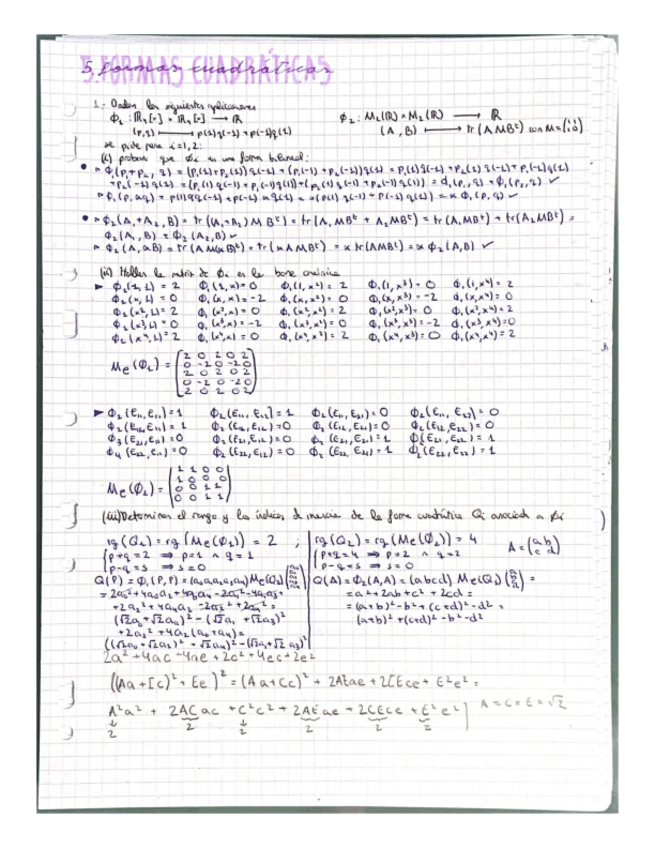 5. FORMAS CUADRÁTICAS
1.- Dadas las siguientes aplicaciones
ϕ₁ : ℝ₄[x] × ℝ₄[x] ⟶ ℝ
(p,q) ⟼ p(1)q(-1) + p(-1)q(1)
ϕ₂ : M₂(ℝ) × M₂(ℝ) ⟶ ℝ
(A, B) ⟼ tr(AMBᵗ) con M=
se pide para i=1,2:
(i) probar que ϕi es una forma bilineal:
ϕ₁(p₁+p₂, q) = (p₁(1)+p₂(1))q(-1) + (p₁(-1)+p₂(-1))q(1) = p₁(1)q(-1) + p₂(1)q(-1) + p₁(-1)q(1)
+p₂(-1)q(1) = (p₁(1)q(-1) + p₁(-1)q(1)) + (p₂(1)q(-1) + p₂(-1)q(1)) = ϕ₁(p₁,q) + ϕ₁(p₂,q) ✓
ϕ₁(p, αq) = p(1)αq(-1) + p(-1)αq(1) = α(p(1)q(-1) + p(-1)q(1)) = αϕ₁(p,q) ✓
ϕ₂(A₁+A₂, B) = tr((A₁+A₂)MBᵗ) = tr(A₁MBᵗ + A₂MBᵗ) = tr(A₁MBᵗ) + tr(A₂MBᵗ) =
ϕ₂(A₁, B) + ϕ₂(A₂, B) ✓
ϕ₂(A, αB) = tr(AM(αB)ᵗ) = tr(αAMBᵗ) = α tr(AMBᵗ) = αϕ₂(A,B) ✓
(ii) Hallar la matriz de ϕi en la base canónica
ϕ₁(1,1) = 2 ϕ₁(1,x) = 0 ϕ₁(1,x²) = 2 ϕ₁(1,x³) = 0 ϕ₁(1,x⁴) = 2
ϕ₁(x,1) = 0 ϕ₁(x,x) = -2 ϕ₁(x,x²) = 0 ϕ₁(x,x³) = -2 ϕ₁(x,x⁴) = 0
ϕ₁(x²,1) = 2 ϕ₁(x²,x) = 0 ϕ₁(x²,x²) = 2 ϕ₁(x²,x³) = 0 ϕ₁(x²,x⁴) = 2
ϕ₁(x³,1) = 0 ϕ₁(x³,x) = -2 ϕ₁(x³,x²) = 0 ϕ₁(x³,x³) = -2 ϕ₁(x³,x⁴) = 0
ϕ₁(x⁴,1) = 2 ϕ₁(x⁴,x) = 0 ϕ₁(x⁴,x²) = 2 ϕ₁(x⁴,x³) = 0 ϕ₁(x⁴,x⁴) = 2
2 0 2 0 2
0 -2 0 -2 0
Me(ϕ₁) = 2 0 2 0 2
0 -2 0 -2 0
2 0 2 0 2
ϕ₂(E₁₁,E₁₁) = 1 ϕ₂(E₁₁,E₁₂) = 1 ϕ₂(E₁₁,E₂₁) = 0 ϕ₂(E₁₁,E₂₂) = 0
ϕ₂(E₁₂,E₁₁) = 1 ϕ₂(E₁₂,E₁₂) = 0 ϕ₂(E₁₂,E₂₁) = 0 ϕ₂(E₁₂,E₂₂) = 0
ϕ₃(E₂₁,E₁₁) = 0 ϕ₂(E₂₁,E₁₂) = 0 ϕ₂(E₂₁,E₂₁) = 1 ϕ₂(E₂₁,E₂₂) = 1
ϕ₄(E₂₂,E₁₁) = 0 ϕ₂(E₂₂,E₁₂) = 0 ϕ₂(E₂₂,E₂₁) = 1 ϕ₂(E₂₂,E₂₂) = 1
1 1 0 0
1 0 0 0
Me(ϕ₂) = 0 0 1 1
0 0 1 1
(iii) Determinar el rango y los índices de inercia de la forma cuadrática Qi asociada a ϕi
rg(Q₁) = rg(Me(ϕ₁)) = 2 ;
p+q=2 ⟹ p=1 ∧ q=1
p-q=s ⟹ s=0
Q(P) = ϕ₁(P,P) = (a₀a₁a₂a₃a₄)Me(Q₁)
+2a₂²+4a₄a₂ -2a₃²+2a₄² =
(√2a₀+√2a₄)² - (√2a₁+√2a₃)²
+2a₂²+4a₂(a₀+a₄) =
rg(Q₂) = rg(Me(ϕ₂)) = 4
p+q=4 ⟹ p=2 ∧ q=2
p-q=s ⟹ s=0
A = (a b
c d)
Q(A) = ϕ₂(A,A) = (a b c d) Me(Q₂) =
= a²+2ab+c²+2cd =
= (a+b)²-b²+(c+d)²-d² =
(a+b)²+(c+d)²-b²-d²
2a²+4ac+4ae+2c²+4ec+2e²
((Aa+Cc)+Ee)² = (Aa+Cc)²+2AEae+2CEce+E²e² =
A²a² + 2ACac + C²c² + 2AEae + 2CEce + E²e²
A=C=E=√2
2 2 2 2 2 2